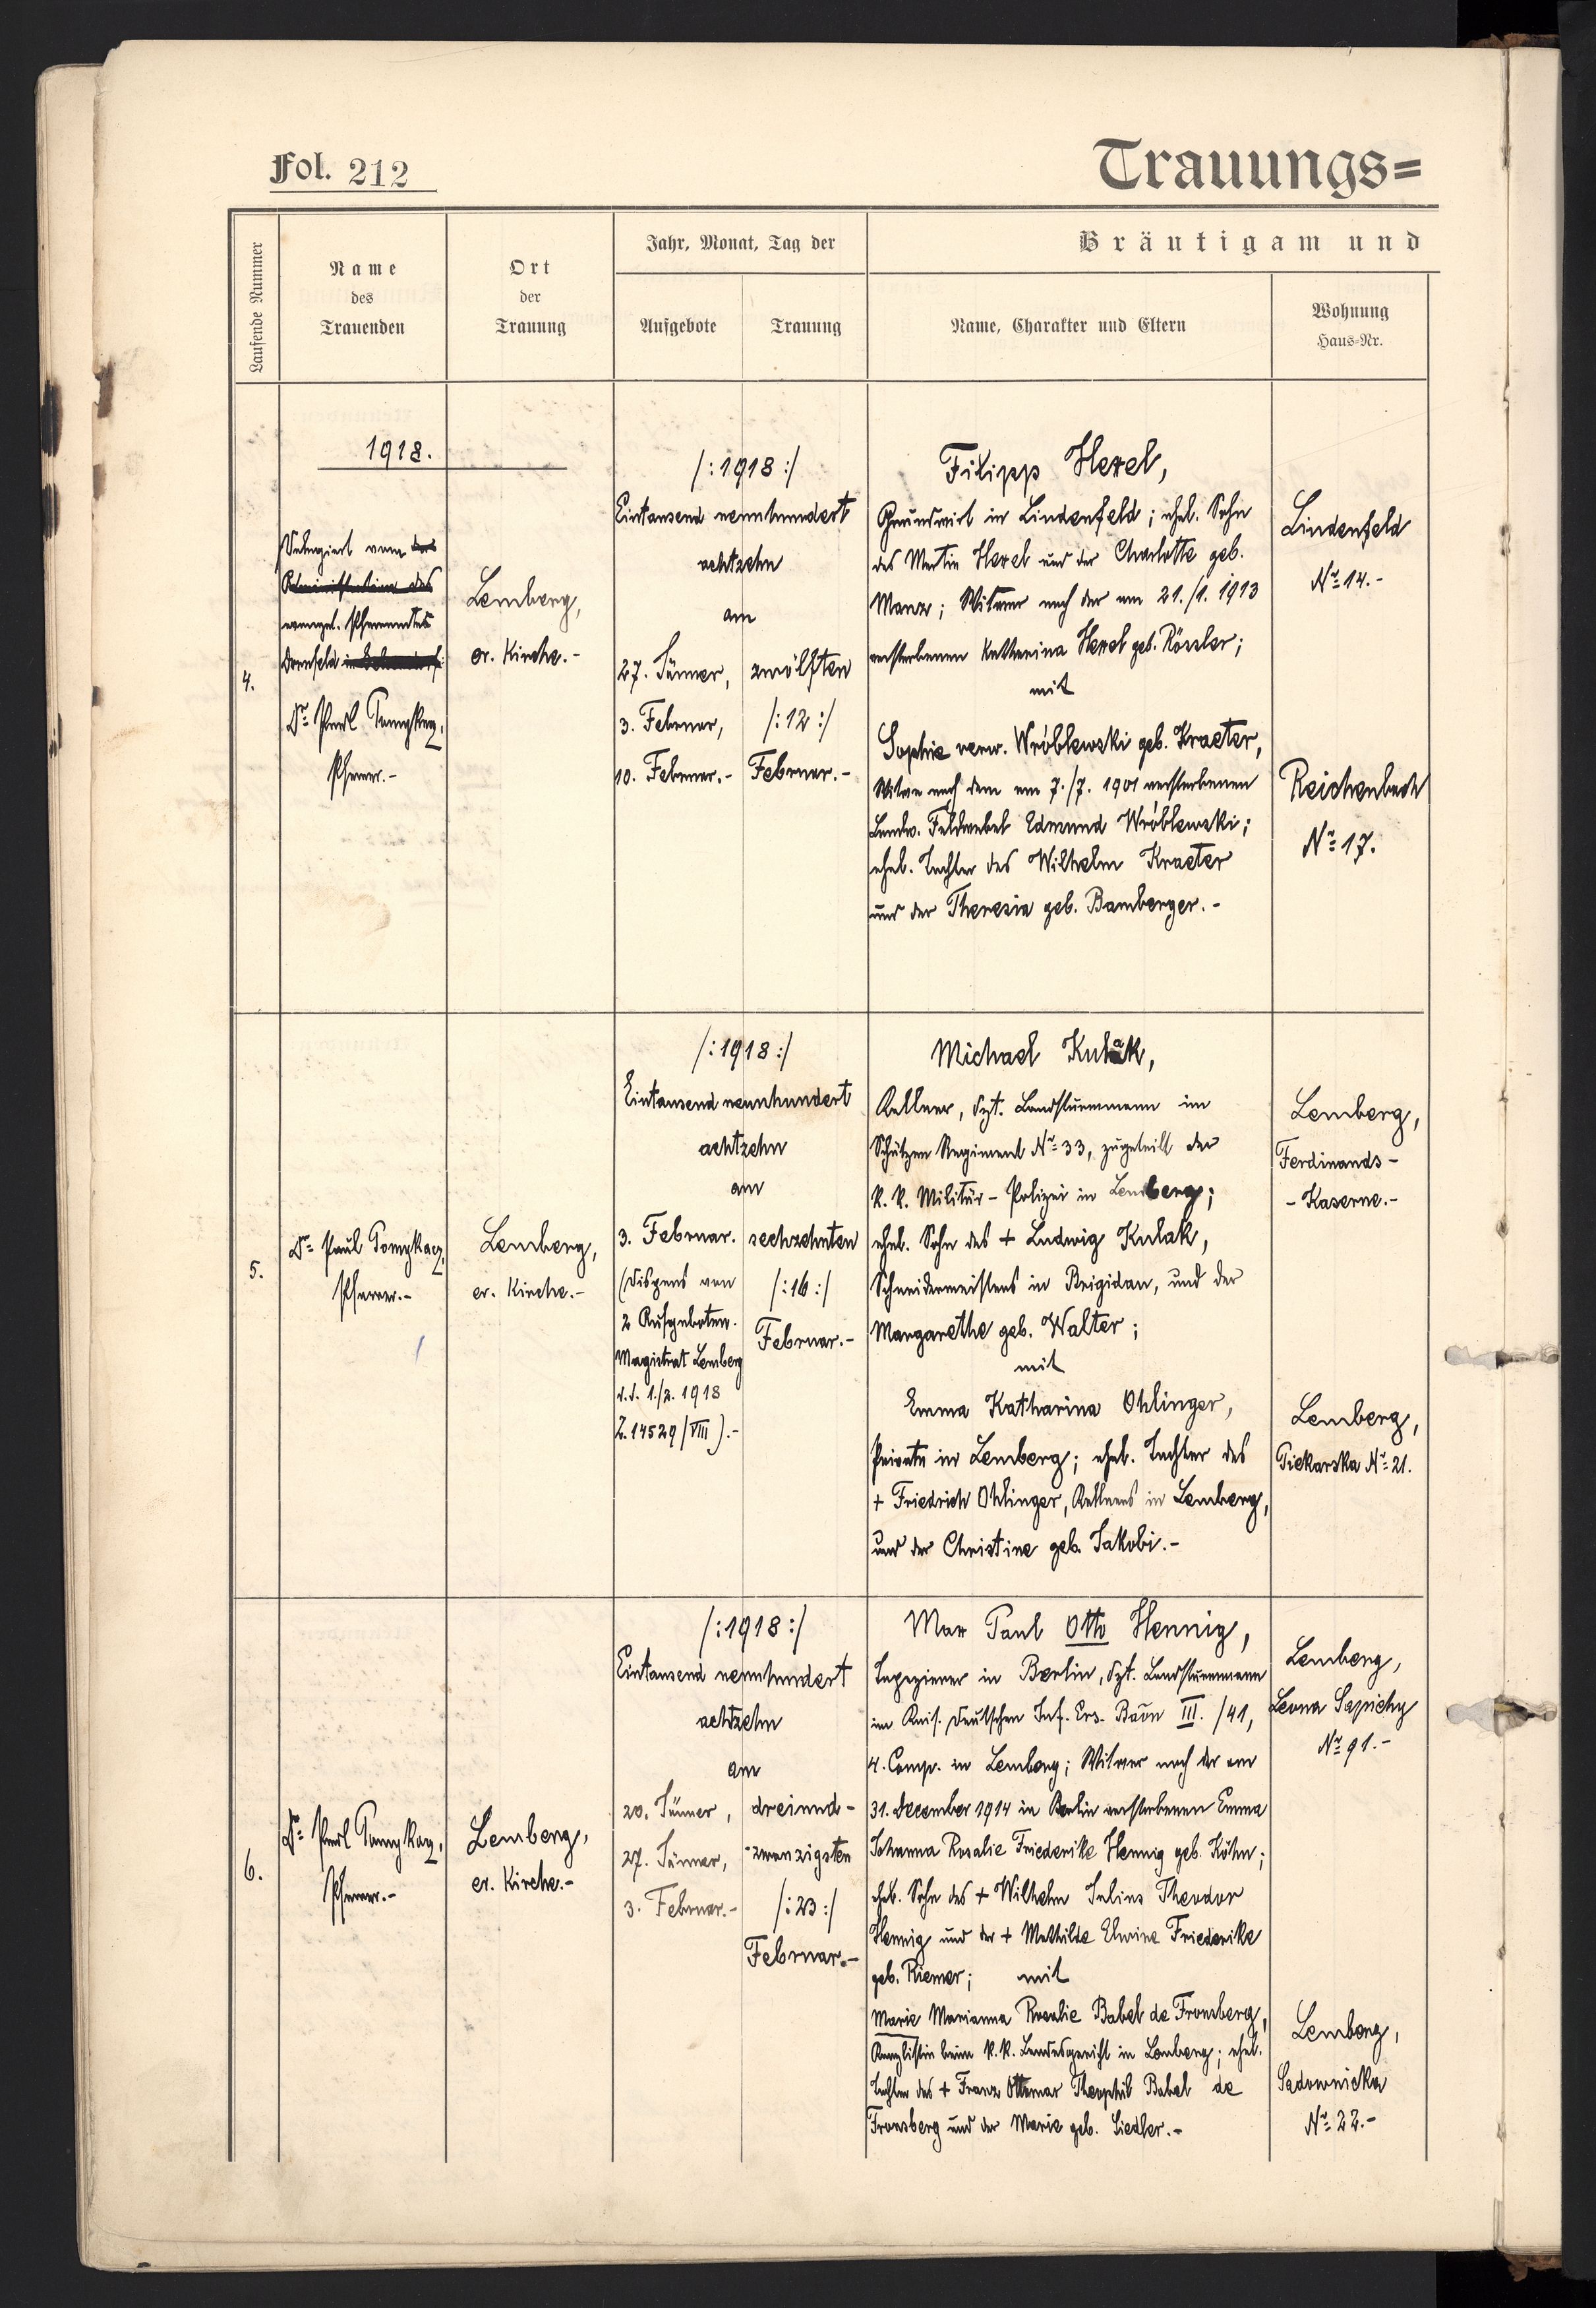 Fol. 212
Trauungs=
Laufende Nummer
Name
des
Trauenden
Ort
der
Trauung
Jahr, Monat, Tag der
Aufgebote
Trauung
Bräutigam und
Name, Charakter und Eltern
Wohnung
Haus-Nr.
1918.
4.
Delegiert vom
evangel. Pfarramtes
Dornfeld
Dr. Paul Tomykaz,
Pfarrer.-
Lemberg,
ev. Kirche.-
/:1918:/
Eintausend neunhundert
achtzehn
am
27. Jänner,
3. Februar,
10. Februar.-
zwölften
/:12:/
Februar.-
Filipp Hexel,
Grundwirt in Lindenfeld; ehel. Sohn
des Martin Hexel und der Charlotte geb.
Manz; Witwer nach der am 21./1. 1913
verstorbenen Katharina Hexel geb. Rössler;
mit
Sophie verw. Wróblewski geb. Kraeter,
Witwe nach dem am 7./7. 1901 verstorbenen
Landw. Feldwebel Edmund Wróblewski;
ehel. Tochter des Wilhelm Kraeter
und der Theresia geb. Bamberger.-
Lindenfeld
Nr. 14.-
Reichenbach
Nr. 17.
5.
Dr. Paul Tomykaz,
Pfarrer.-
Lemberg,
ev. Kirche.-
/:1918:/
Eintausend neunhundert
achtzehn
am
3. Februar.
(Dispens von
2 Aufgeboten.
Magistrat Lemberg
d.d. 1./2. 1918
Z. 14529/VIII).-
sechzehnten
/:16:/
Februar.-
Michael Kulak,
Kellner, dzt. Landsturmmann im
Schützen Regiment Nr. 33, zugeteilt der
k. k. Militär-Polizei in Lemberg;
ehel. Sohn des + Ludwig Kulak,
Schneidermeisters in Brigidau, und der
Margarethe geb. Walter;
mit
Emma Katharina Ohlinger,
Private in Lemberg; ehel. Tochter des
+ Friedrich Ohlinger, Kellners in Lemberg,
und der Christine geb. Jakobi.-
Lemberg,
Ferdinands-
-Kaserne.-
Lemberg,
Piekarska Nr. 21.
6.
Dr. Paul Tomykaz,
Pfarrer.-
Lemberg,
ev. Kirche.-
/:1918:/
Eintausend neunhundert
achtzehn
am
20. Jänner,
27. Jänner,
3. Februar.-
dreiund-
-zwanzigsten
/:23:/
Februar.-
Max Paul Otto Hennig,
Tapezierer in Berlin, dzt. Landsturmmann
im Kais. Deutschen Inf. Ers. Baõn III./41,
4. Comp. in Lemberg; Witwer nach der am
31. December 1914 in Berlin verstorbenen Emma
Johanna Rosalie Friederike Hennig geb. Köhn;
ehel. Sohn des + Wilhelm Julius Theodor
Hennig und der + Mathilde Elwine Friederike
geb. Riemer; mit
Marie Marianna Rosalie Babel de Fronsberg,
Kanzlistin beim k. k. Landesgericht in Lemberg; ehel.
Tochter des + Franz Ottomar Theophil Babel de
Fronsberg und der Marie geb. Siedler.-
Lemberg,
Leona Sapiehy
Nr. 91.-
Lemberg,
Sadownicka
Nr. 22.-